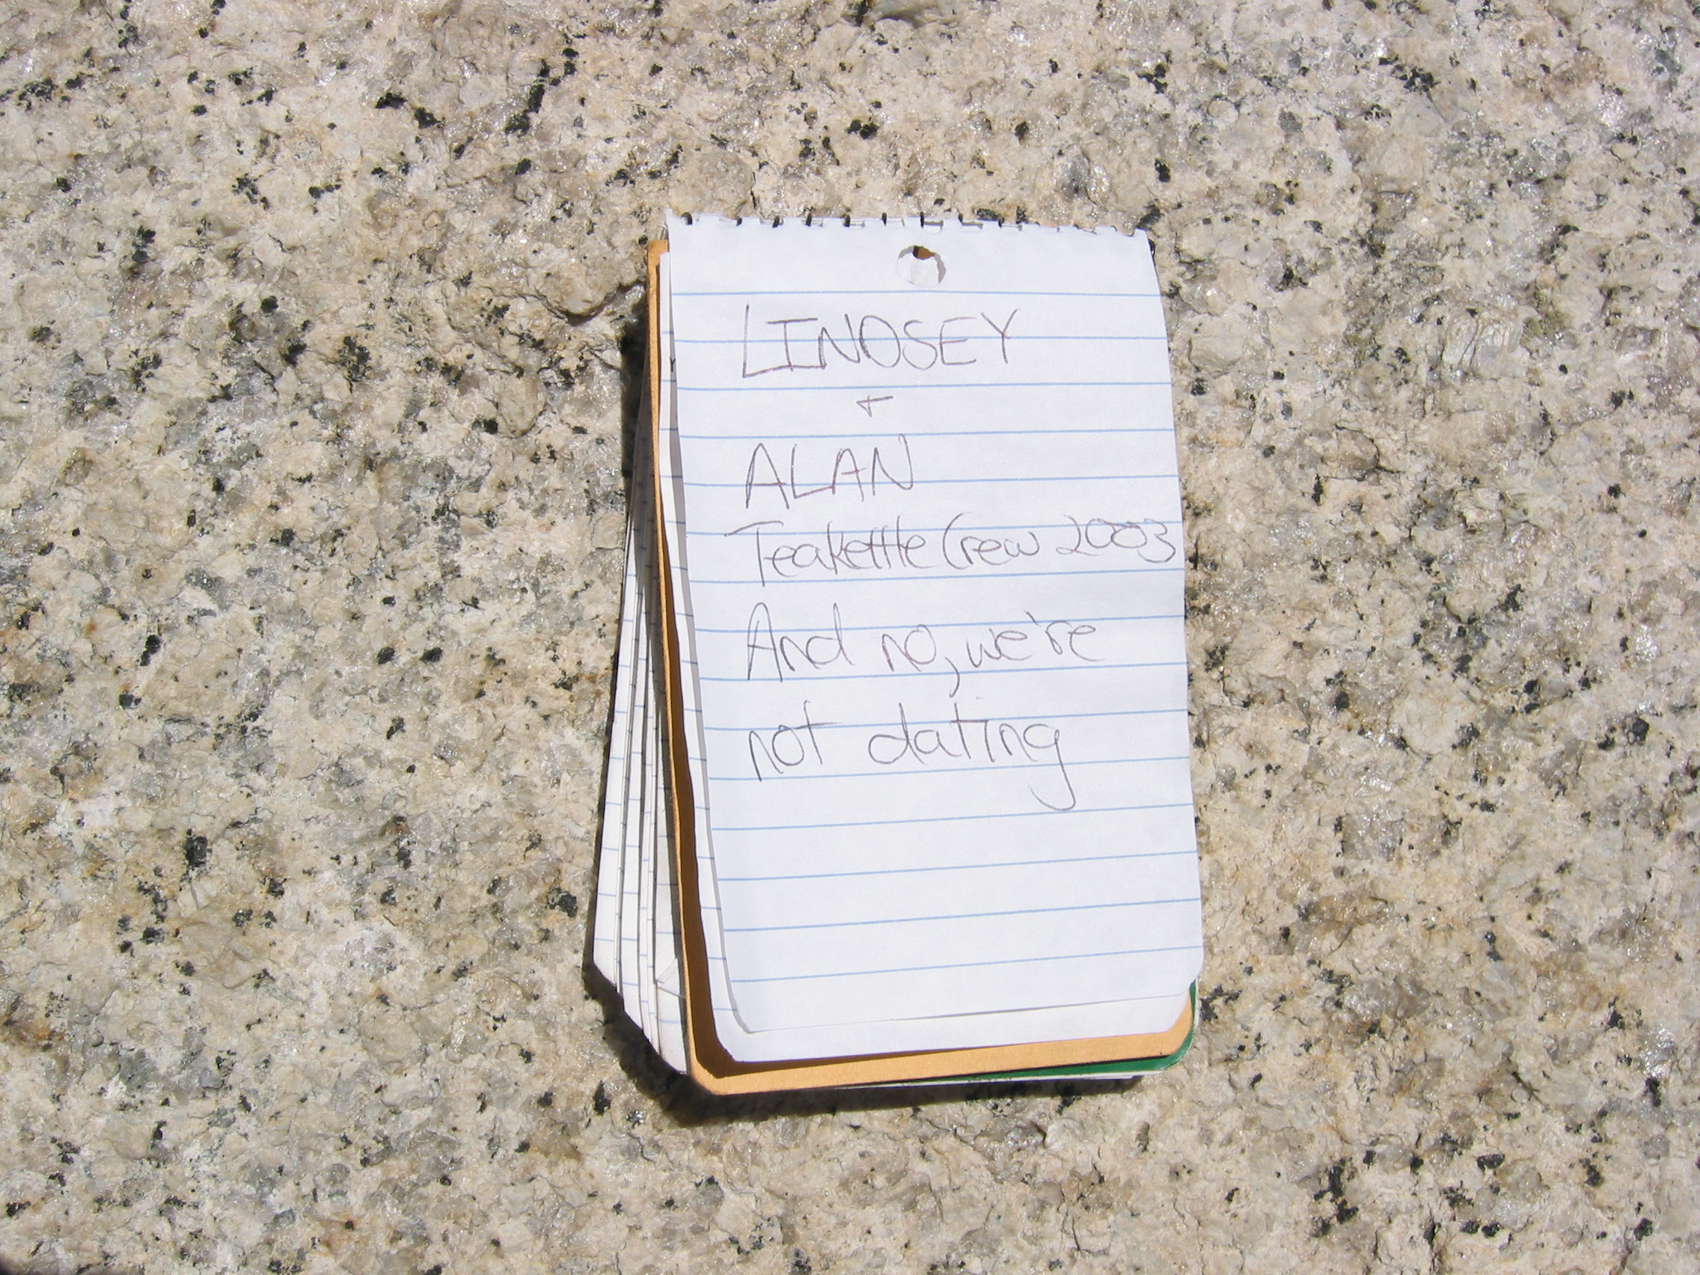 LINDSEY
+
ALAN
Teakettle Crew 2003
And no, we're
not dating